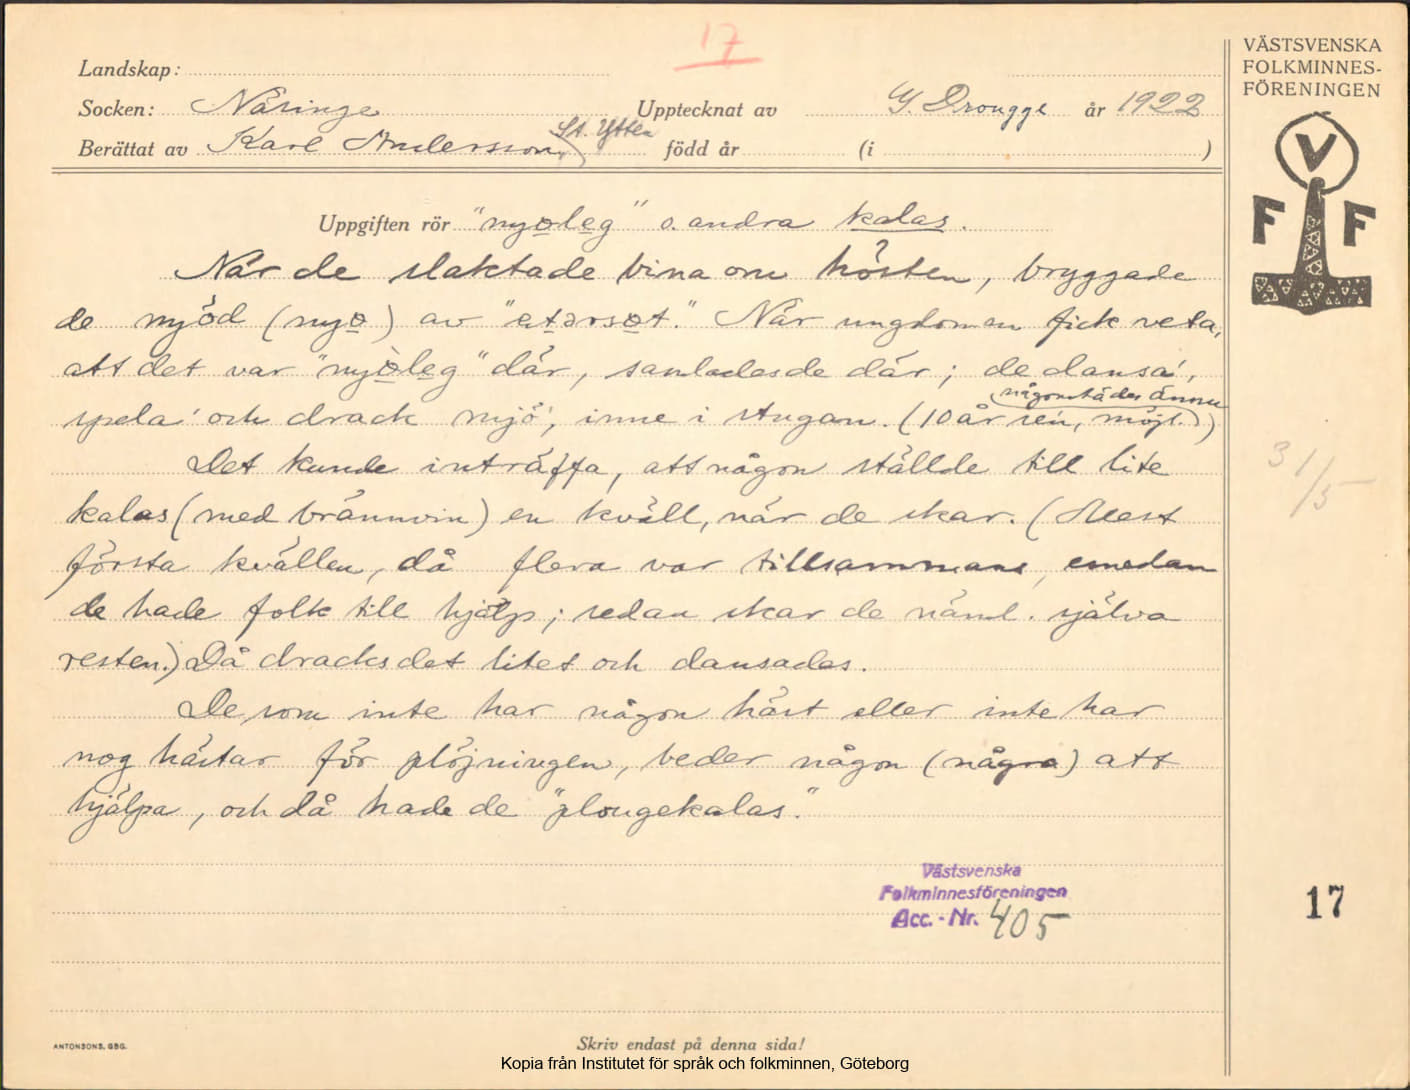 17
VÄSTSVENSKA
FOLKMINNES-
FÖRENINGEN
Landskap:
Socken: Näsinge Upptecknat av G. Drougge år 1922
Berättat av Karl Andersson, St. Ytten född år (i )
V
F F
Uppgiften rör "nyøleg" o. andra kalas.
När de slaktade bina om hösten, bryggade
de mjöd (mjø) av "etərsøt." När ungdomen fick veta,
att det var "mjøleg" där, samlades de där; de dansa',
spela' och drack mjö', inne i stugan. (10 år sen, möjl. någonstädes ännu)
Det kunde inträffa, att någon ställde till lite
kalas (med brännvin) en kväll, när de skar. (Mest
första kvällen, då flera var tillsammans, emedan
de hade folk till hjälp; sedan skar de näml. själva
resten.) Då dracks det litet och dansades.
De som inte har någon häst eller inte har
nog hästar för plöjningen, beder någon (några) att
hjälpa, och då hade de "plougekalas."
31/5
Västsvenska
Folkminnesföreningen
Acc. - Nr. 405
17
ANTONSONS, GBG.
Skriv endast på denna sida!
Kopia från Institutet för språk och folkminnen, Göteborg